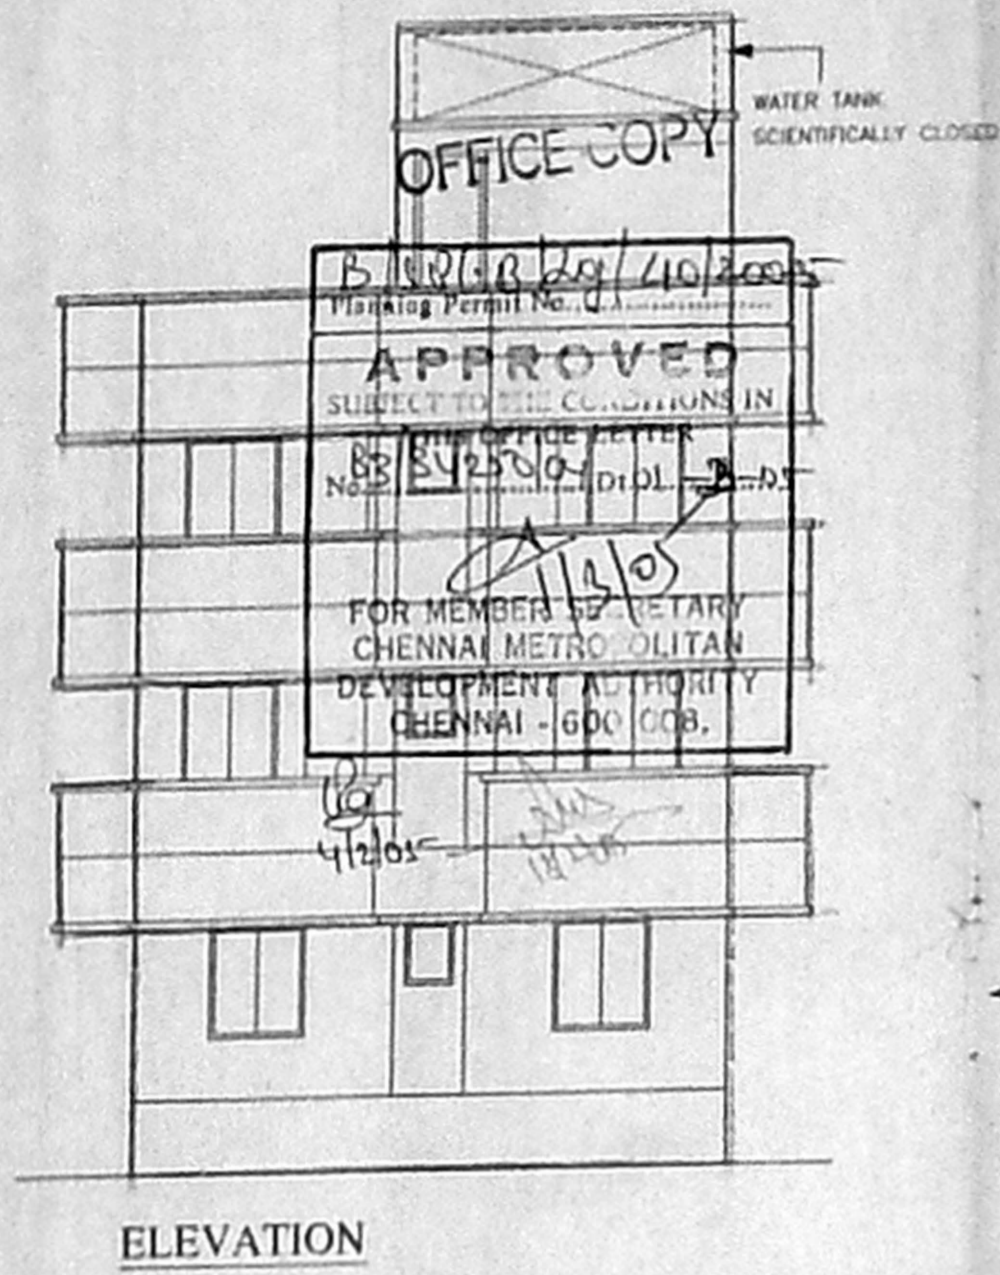 WATER TANK
SCIENTIFICALLY CLOSED
OFFICE COPY
Planning Permit No.
APPROVED
SUBJECT TO THE CONDITIONS IN
THIS OFFICE LETTER
No. Dt.
1/3/05
FOR MEMBER SECRETARY
CHENNAI METROPOLITAN
DEVELOPMENT AUTHORITY
CHENNAI - 600 008.
4/2/05
ELEVATION